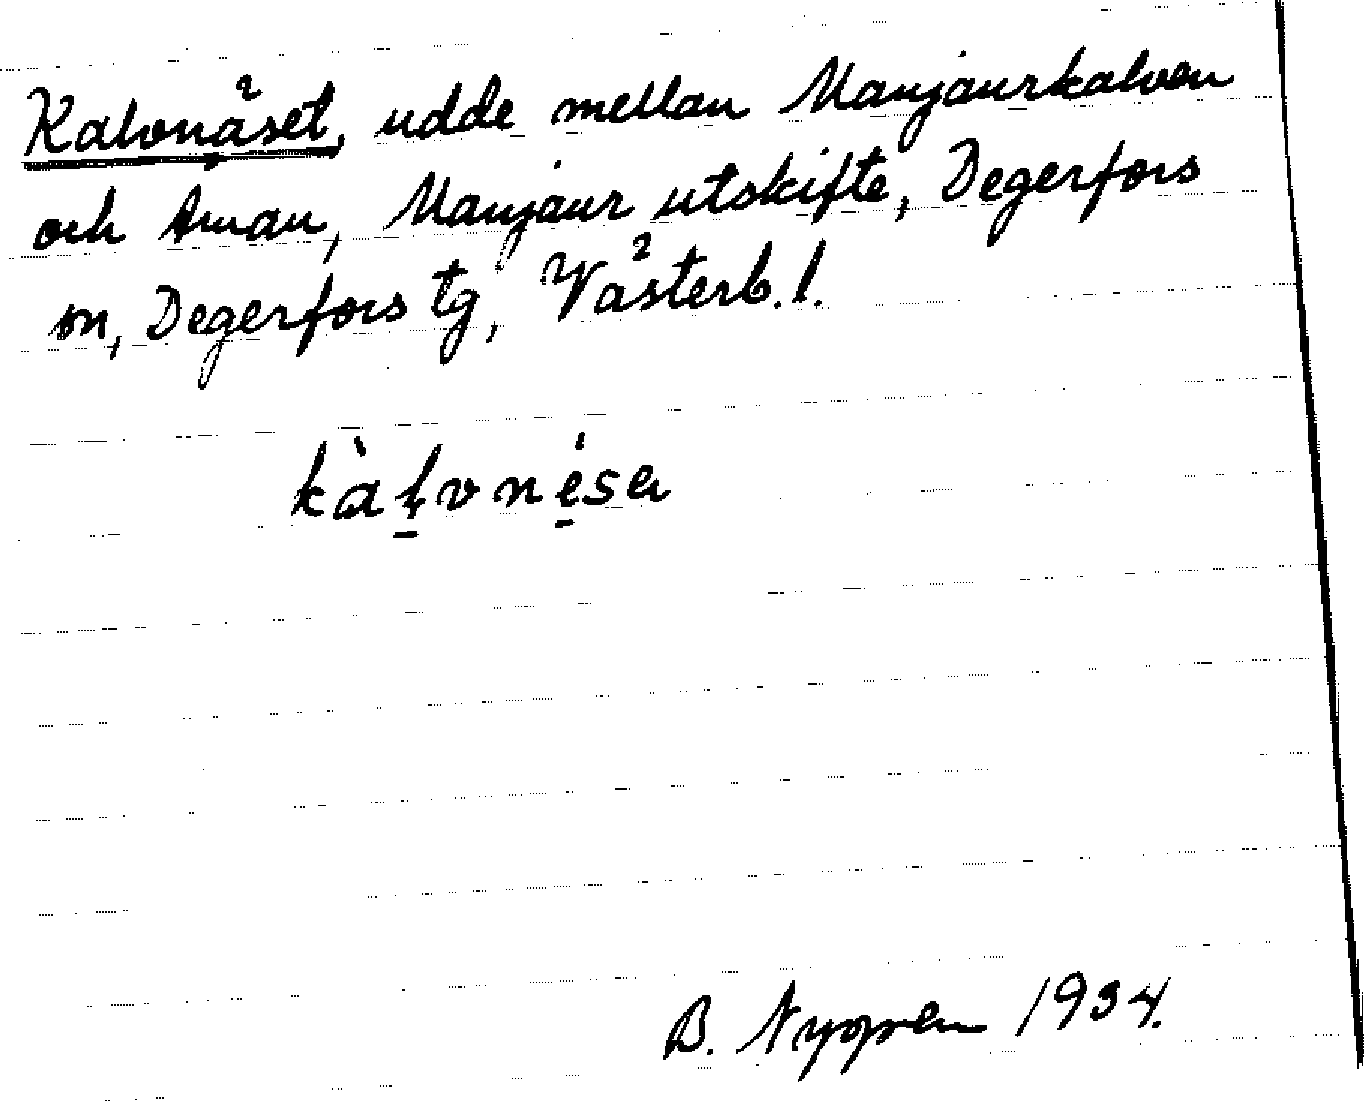 Kalvnäset, udde mellan Manjaurkalven
och Åman, Manjaur utskifte, Degerfors
sn, Degerfors tg, Västerb. l.
kàlvnésa
B. Nygren 1934.